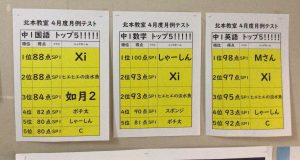 北本教室 4月度月例テスト
中1国語 トップ5!!!!!
1位 88点 Xi
2位 ヒエヒエの淡水魚
3位 84点 如月2
4位 82点 ポチ太
5位 81点 しゃーしん
5位 80点 C
北本教室 4月度月例テスト
中1数学 トップ5!!!!!
1位 100点 しゃーしん
2位 93点 Xi
3位 ヒエヒエの淡水魚
4位 90点 スポンジ
5位 ポチ太
北本教室 4月度月例テスト
中1英語 トップ5!!!!!
1位 98点 Mさん
2位 97点 Xi
3位 95点 ヒエヒエの淡水魚
4位 93点 しゃーしん
5位 92点 C